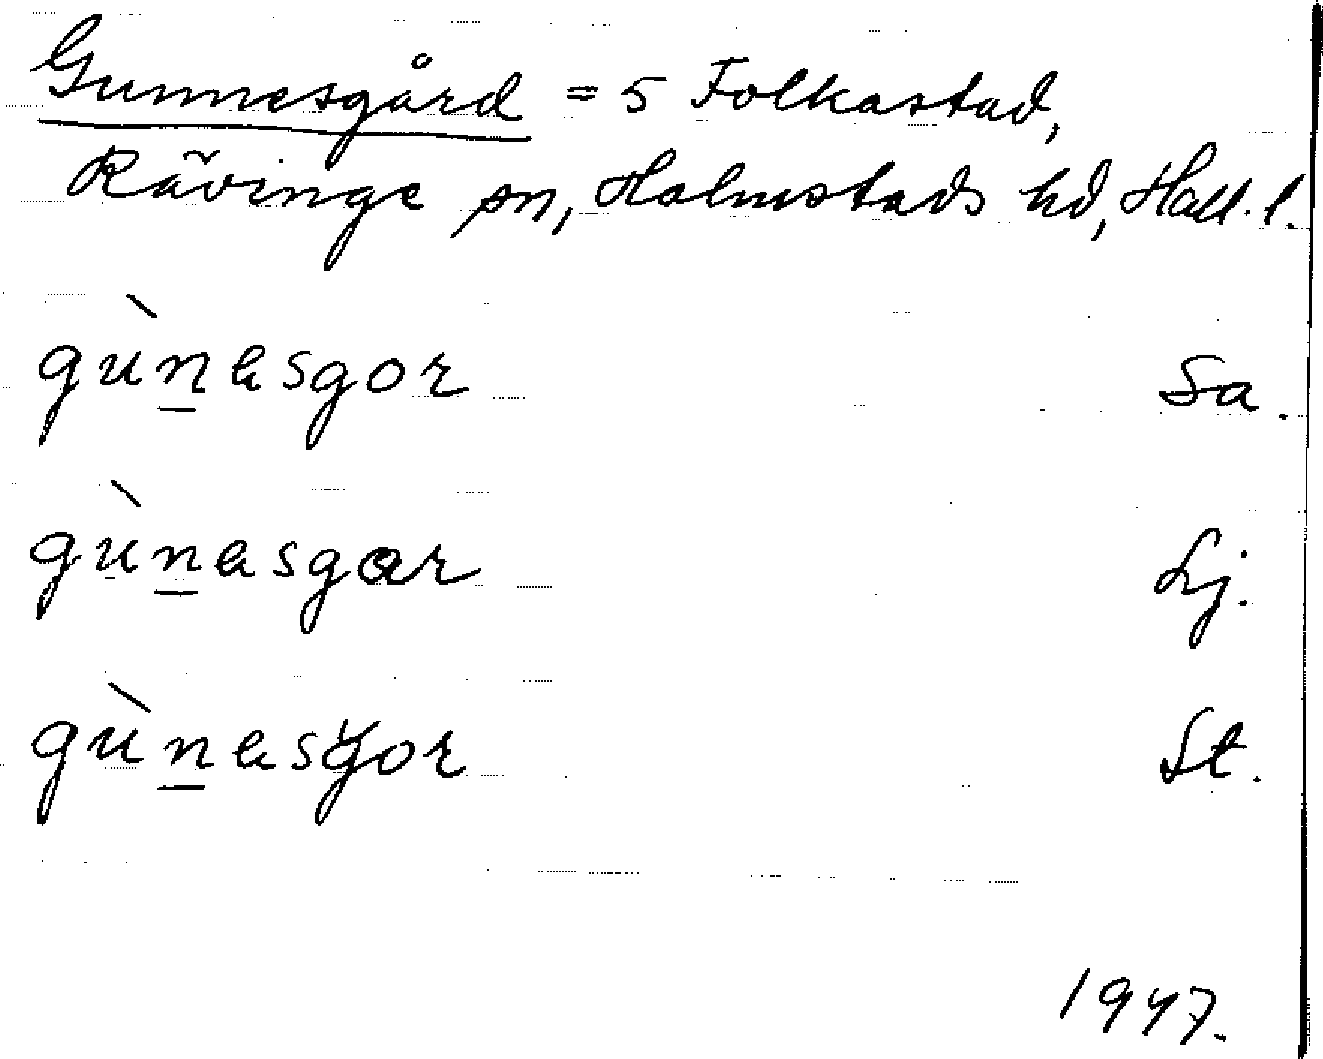 Gunnesgård = 5 Folkastad,
Rävinge sn, Halmstads hd, Hall. l.
gùn̲esgor Sa.
gùn̲asgɑr Lj.
gùn̲esɣor St.
1947.